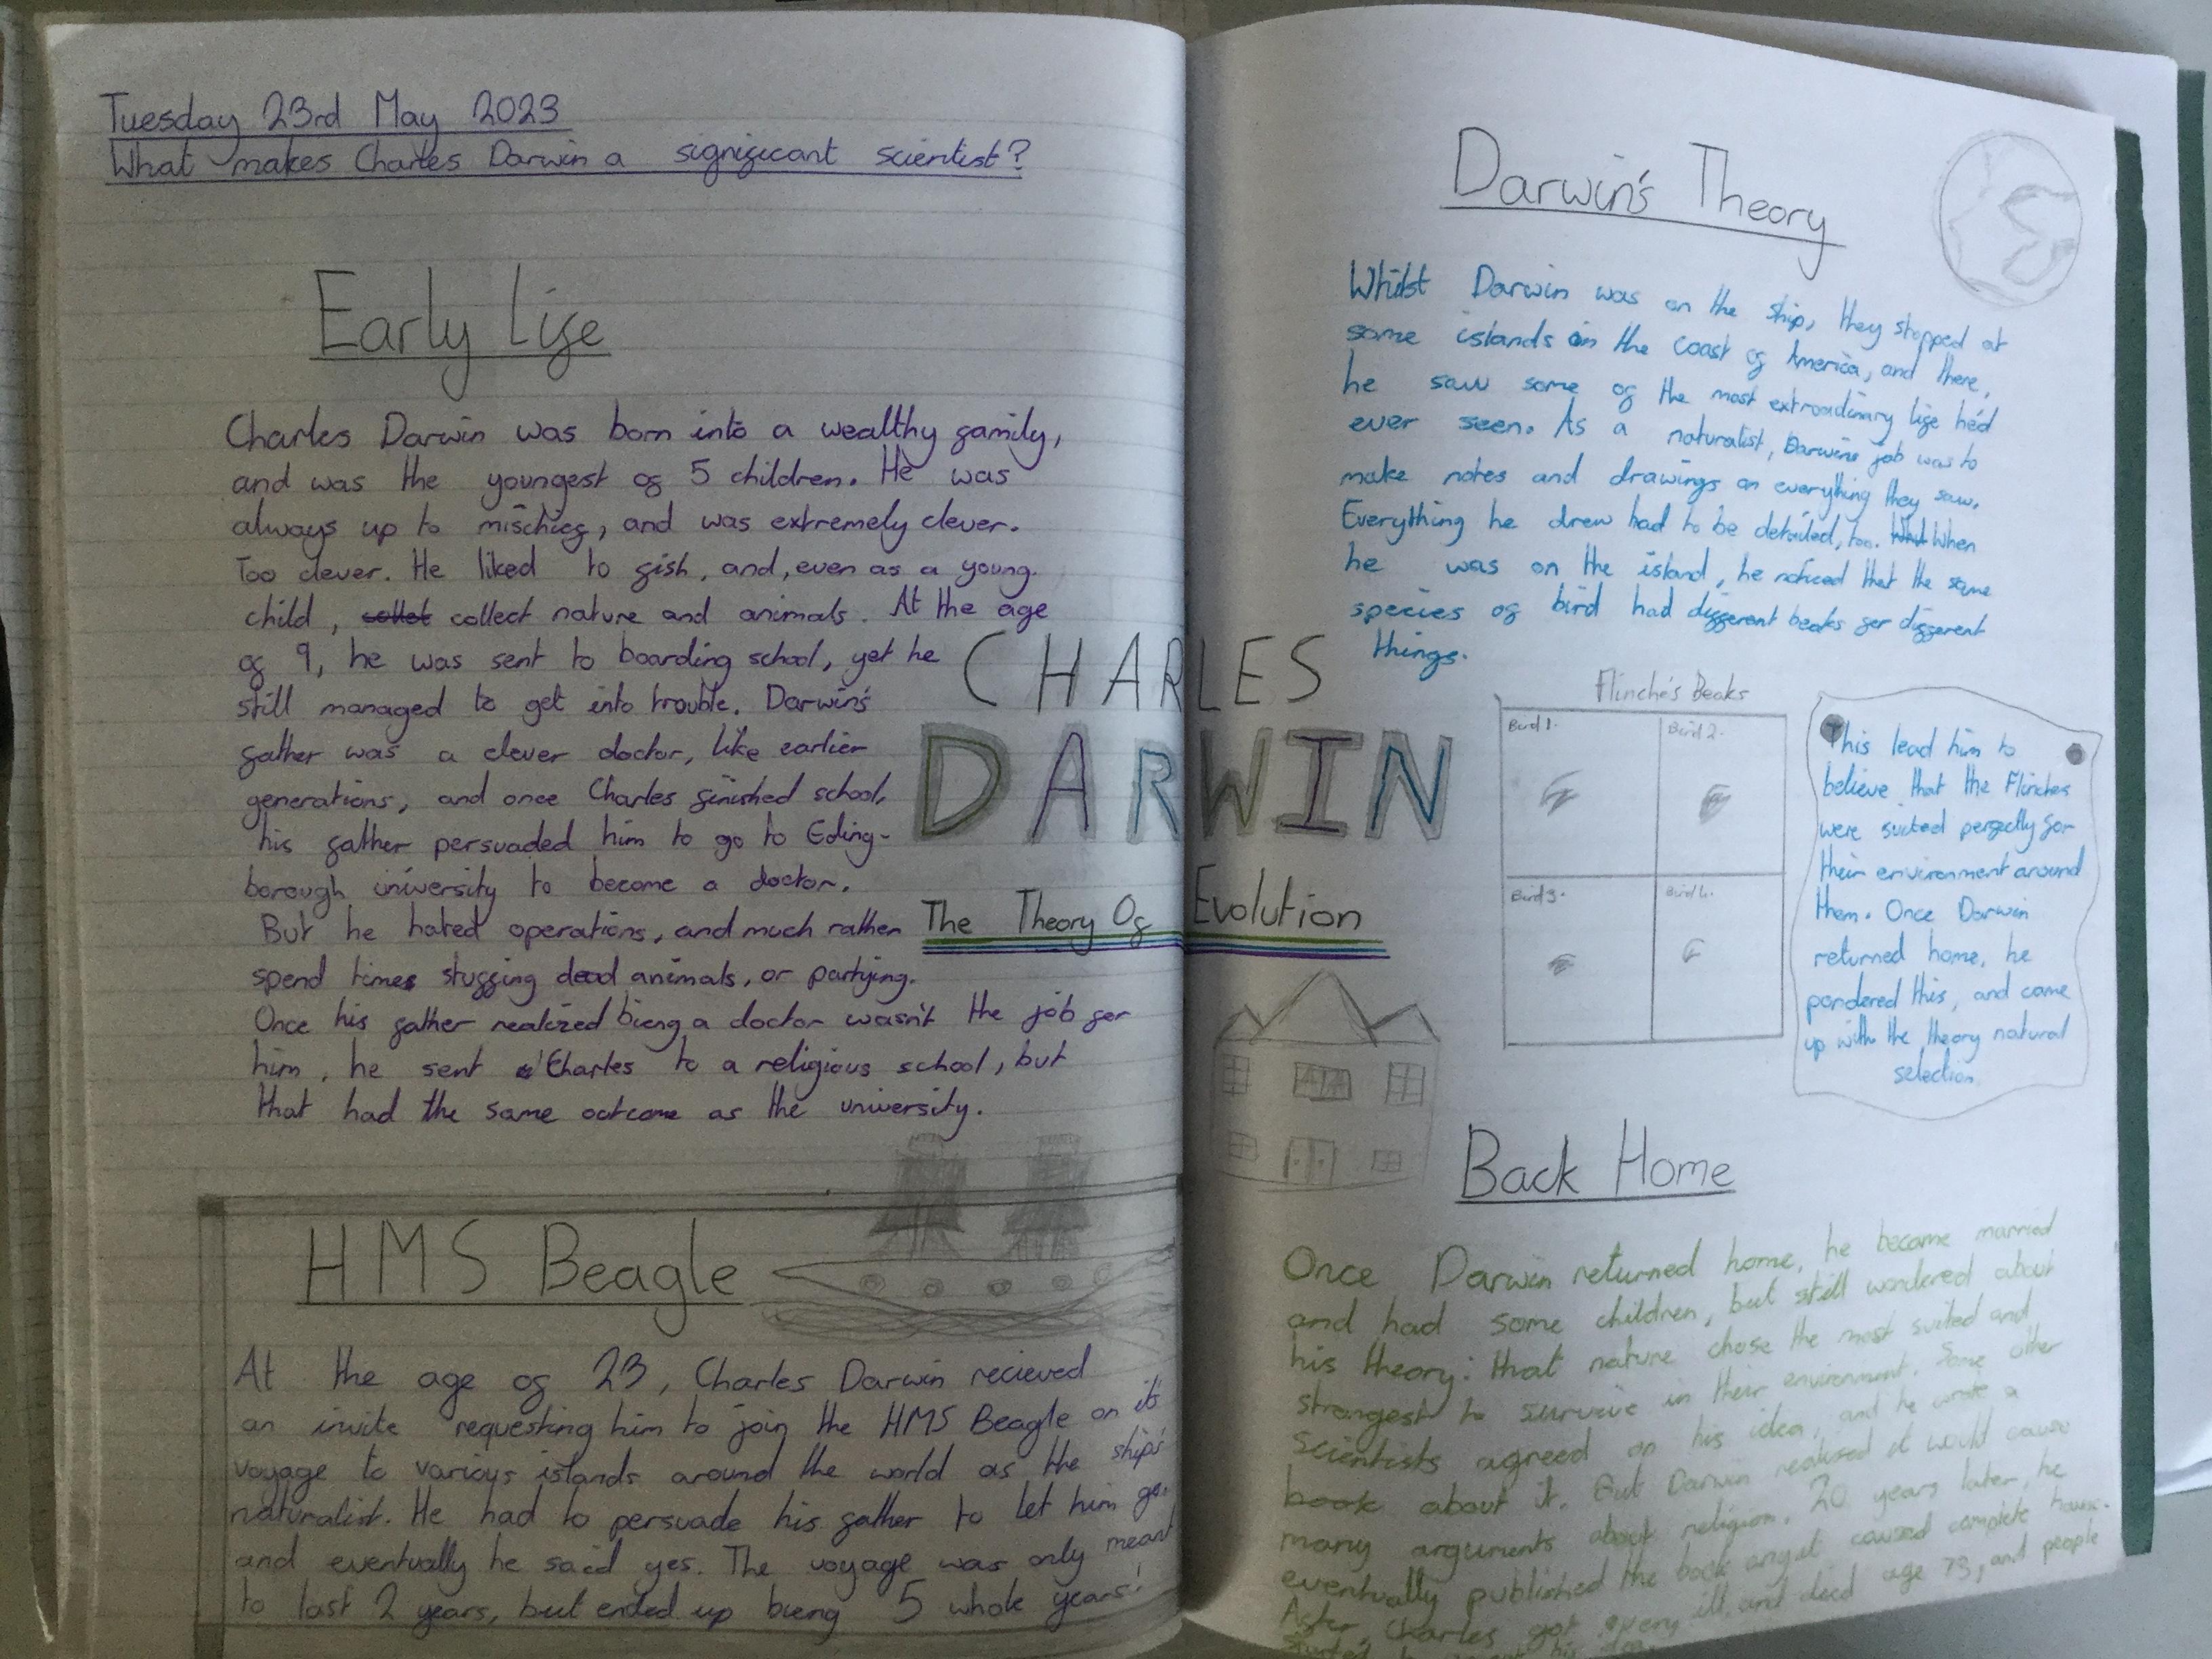 Tuesday 23rd May 2023
What makes Charles Darwin a significant scientist?
Early Life
Charles Darwin was born into a wealthy family,
and was the youngest of 5 children. He was
always up to mischief, and was extremely clever.
Too clever. He liked to fish, and, even as a young
child, collet collect nature and animals. At the age
of 9, he was sent to boarding school, yet he
still managed to get into trouble. Darwin's
father was a clever doctor, like earlier
generations, and once Charles finished school,
his father persuaded him to go to Eding-
borough university to become a doctor.
But he hated operations, and much rather
spend times stuffing dead animals, or partying.
Once his father realized bieng a doctor wasn't the job for
him, he sent Charles to a religious school, but
that had the same outcome as the university.
HMS Beagle
At the age of 23, Charles Darwin recieved
an invite requesting him to join the HMS Beagle on it's
voyage to various islands around the world as the ship's
naturalist. He had to persuade his father to let him go,
and eventually he said yes. The voyage was only meant
to last 2 years, but ended up bieng 5 whole years!
CHARLES
DARWIN
The Theory Of Evolution
Darwin's Theory
Whilst Darwin was on the ship, they stopped at
some islands on the coast of America, and there,
he saw some of the most extroadinary life he'd
ever seen. As a naturalist, Darwins job was to
make notes and drawings on everything they saw.
Everything he drew had to be detailed, too. When
he was on the island, he noticed that the same
species of bird had different beaks for different
things.
Flinche's Beaks
Bird 1.
Bird 2.
Bird 3.
Bird 4.
This lead him to
believe that the Flinches
were suited perfectly for
their environment around
them. Once Darwin
returned home, he
pondered this, and came
up with the theory natural
selection
Back Home
Once Darwin returned home, he became married
and had some children, but still wondered about
his theory: that nature chose the most suited and
strongest to survive in their environment. Some other
scientists agreed on his idea, and he wrote a
book about it. But Darwin realised it would cause
many arguments about religion. 20 years later, he
eventually published the book and it caused complete
After, Charles got very ill, and died age 73, and people